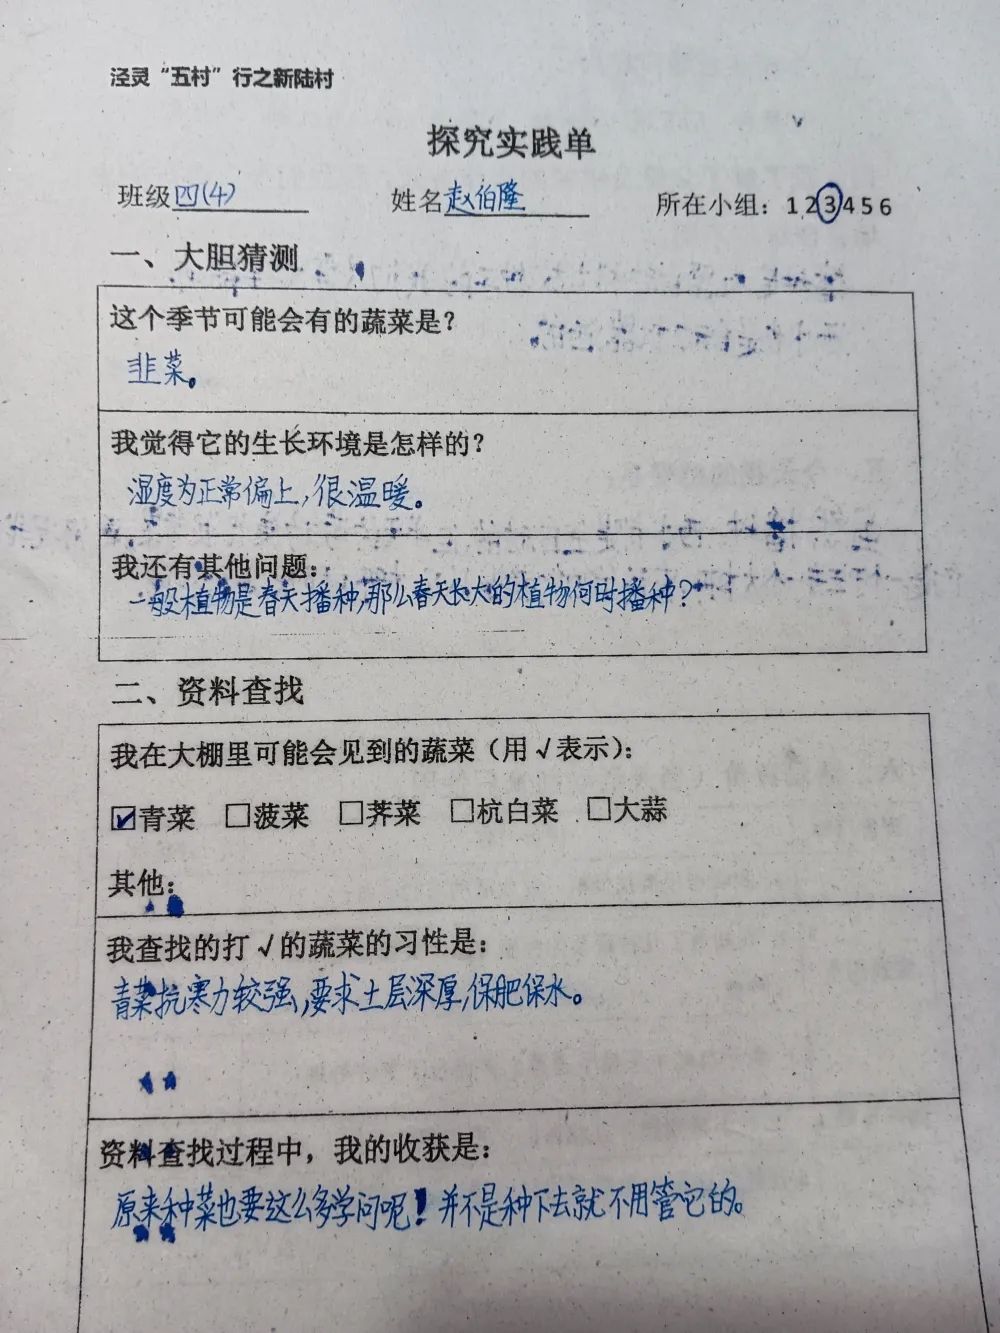 泾灵“五村”行之新陆村
探究实践单
班级四(4) 姓名赵伯隆 所在小组：1 2 3 4 5 6
一、大胆猜测
这个季节可能会有的蔬菜是？
韭菜。
我觉得它的生长环境是怎样的？
湿度为正常偏上，很温暖。
我还有其他问题：
一般植物是春天播种，那么春天长大的植物何时播种？
二、资料查找
我在大棚里可能会见到的蔬菜（用√表示）：
☑青菜 □菠菜 □荠菜 □杭白菜 □大蒜
其他：
我查找的打√的蔬菜的习性是：
青菜抗寒力较强，要求土层深厚，保肥保水。
资料查找过程中，我的收获是：
原来种菜也要这么多学问呢！并不是种下去就不用管它的。